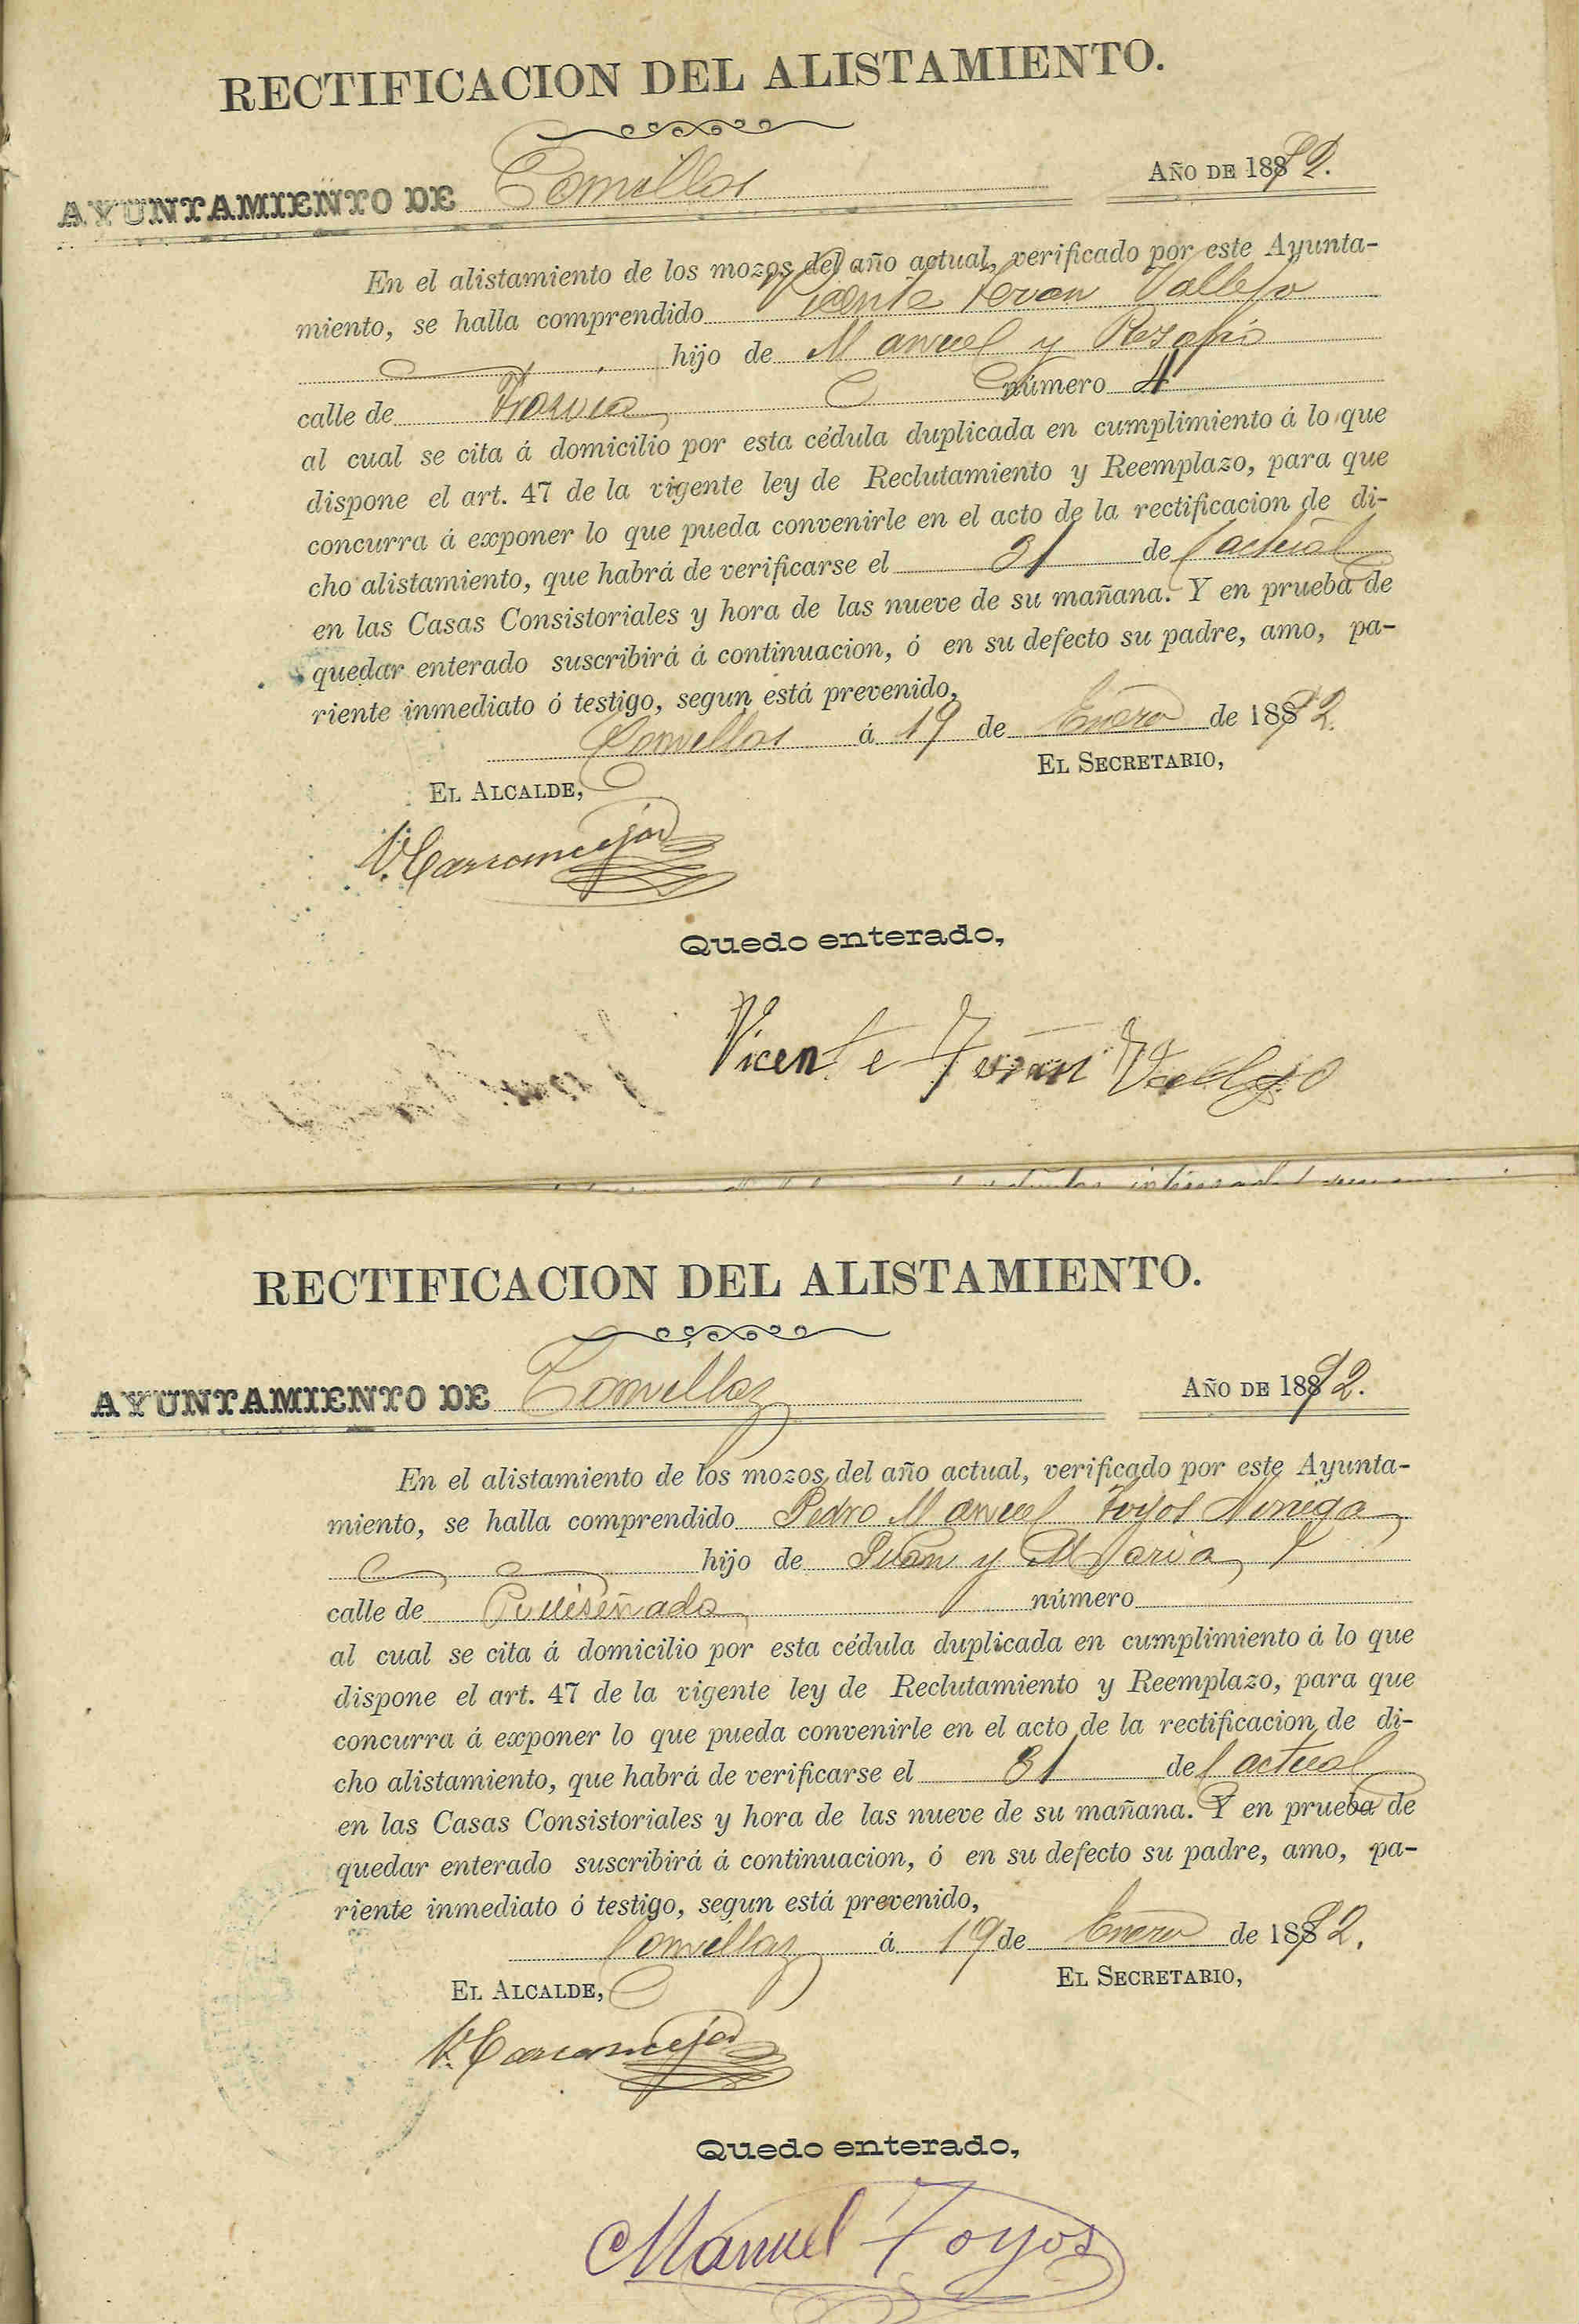 RECTIFICACION DEL ALISTAMIENTO.
AYUNTAMIENTO DE Comillas AÑO DE 1892.
En el alistamiento de los mozos del año actual, verificado por este Ayunta-
miento, se halla comprendido Vicente Teran Vallejo
hijo de Manuel y
calle de Trasvia número 4
al cual se cita á domicilio por esta cédula duplicada en cumplimiento á lo que
dispone el art. 47 de la vigente ley de Reclutamiento y Reemplazo, para que
concurra á exponer lo que pueda convenirle en el acto de la rectificacion de di-
cho alistamiento, que habrá de verificarse el 31 del actual
en las Casas Consistoriales y hora de las nueve de su mañana. Y en prueba de
quedar enterado suscribirá á continuacion, ó en su defecto su padre, amo, pa-
riente inmediato ó testigo, segun está prevenido,
Comillas á 19 de Enero de 1892.
EL ALCALDE, EL SECRETARIO,
Quedo enterado,
Vicente Teran Vallejo
RECTIFICACION DEL ALISTAMIENTO.
AYUNTAMIENTO DE Comillas AÑO DE 1892.
En el alistamiento de los mozos del año actual, verificado por este Ayunta-
miento, se halla comprendido Pedro Manuel Toyos Noriega
hijo de Juan y Maria
calle de número
al cual se cita á domicilio por esta cédula duplicada en cumplimiento á lo que
dispone el art. 47 de la vigente ley de Reclutamiento y Reemplazo, para que
concurra á exponer lo que pueda convenirle en el acto de la rectificacion de di-
cho alistamiento, que habrá de verificarse el 31 del actual
en las Casas Consistoriales y hora de las nueve de su mañana. Y en prueba de
quedar enterado suscribirá á continuacion, ó en su defecto su padre, amo, pa-
riente inmediato ó testigo, segun está prevenido,
Comillas á 19 de Enero de 1892.
EL ALCALDE, EL SECRETARIO,
Quedo enterado,
Manuel Toyos